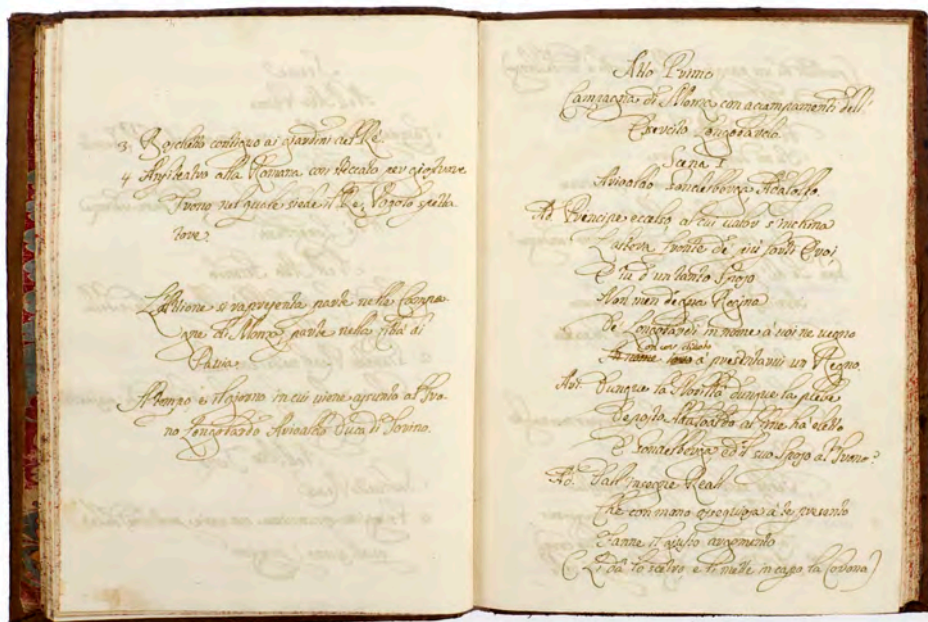 3. Boschetto contiguo ai giardini del Rè.
4 Anfiteatro alla Romana con steccato per giostrare
Trono nel quale siede il Rè. Popolo spetta
tore.
L'Azione si rapresenta parte nelle Campa-
gne di Monza, parte nella città di
Pavia.
Il tempo è il giorno in cui viene assunto al Tro-
no Longobardo Arioaldo Duca di Torino.
Atto Primo
Campagna di Monza con acampamenti dell'
Esercito Longobardo.
Scena I
Arioaldo Gondelberga Adalolfo.
Ad. Principe eccelso, al cui valor s'inchina
L'altera fronte de' più forti Eroi,
E tu d'un tanto sposo
Non men degna Regina
De' Longobardi in nome à voi ne vegno
à presentarvi un Regno.
Ari. Dunque la Nobiltà dunque la plebe
Deposto Adaloaldo al fine ha eletto
E Gondelberga ed il suo sposo al Trono?
Ad. Dall'insegne Reali
Che con mano ossequiosa à te presento
Fanne il giusto argomento
(Li dà lo scetro e li mette in capo la Corona)